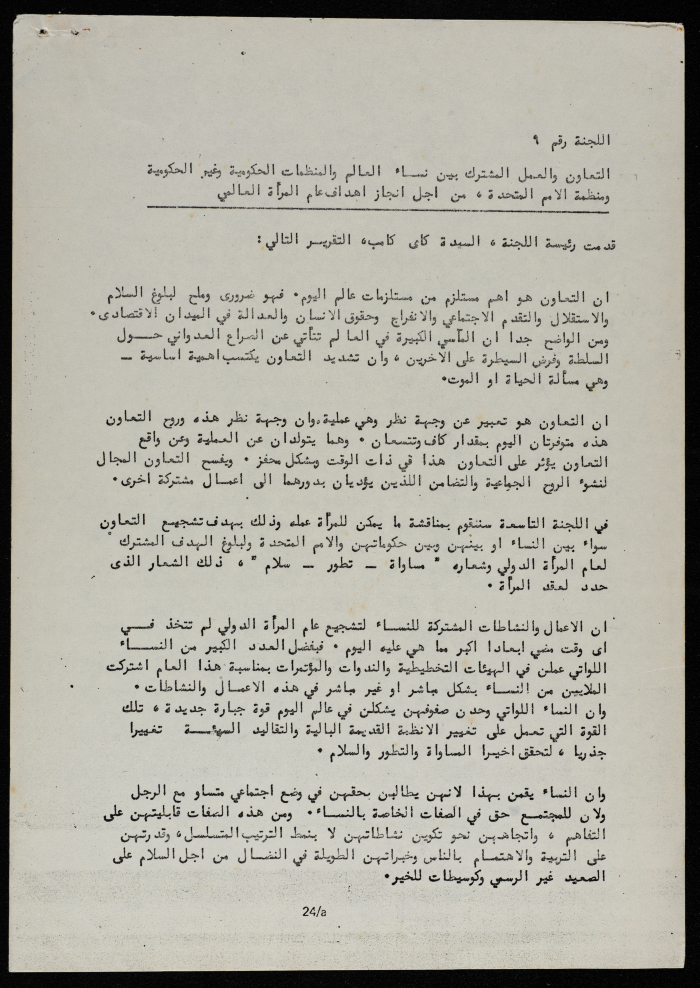 اللجنة رقم ٩
التعاون والعمل المشترك بين نساء العالم والمنظمات الحكومية وغير الحكومية
ومنظمة الامم المتحدة ، من اجل انجاز اهداف عام المرأة العالمي
قدمت رئيسة اللجنة ، السيدة كاى كامب، التقرير التالي :
ان التعاون هو اهم مستلزم من مستلزمات عالم اليوم . فهو ضرورى وملح لبلوغ السلام
والاستقلال والتقدم الاجتماعي والانفراج وحقوق الانسان والعدالة في الميدان الاقتصادى .
ومن الواضح جدا ان المآسي الكبيرة في العالم تتأتي عن الصراع العدواني حول
السلطة وفرض السيطرة على الاخرين ، وان تشديد التعاون يكتسب اهمية اساسية —
وهي مسألة الحياة او الموت .
ان التعاون هو تعبير عن وجهة نظر وهي عملية، وان وجهة نظر هذه وروح التعاون
هذه متوفرتان اليوم بمقدار كاف وتتسعان . وهما يتولدان عن العملية وعن واقع
التعاون يؤثر على التعاون هذا في ذات الوقت وبشكل محفز . ويفسح التعاون المجال
لنشوء الروح الجماعية والتضامن اللذين يؤديان بدورهما الى اعمال مشتركة اخرى .
في اللجنة التاسعة سنقوم بمناقشة ما يمكن للمرأة عمله وذلك بهدف تشجيع التعاون
سواء بين النساء او بينهن وبين حكوماتهن والامم المتحدة ولبلوغ الهدف المشترك
لعام المرأة الدولي وشعاره " مساواة — تطور — سلام " ، ذلك الشعار الذى
حدد لعقد المرأة .
ان الاعمال والنشاطات المشتركة للنساء لتشجيع عام المرأة الدولي لم تتخذ في
اى وقت مضى ابعادا اكبر مما هي عليه اليوم . فبفضل العدد الكبير من النساء
اللواتي عملن في الهيئات التخطيطية والندوات والمؤتمرات بمناسبة هذا العام اشتركت
الملايين من النساء بشكل مباشر او غير مباشر في هذه الاعمال والنشاطات .
وان النساء اللواتي وحدن صفوفهن يشكلن في عالم اليوم قوة جبارة جديدة ، تلك
القوة التي تعمل على تغيير الانظمة القديمة البالية والتقاليد السيئة تغييرا
جذريا ، لتحقق اخيرا المساواة والتطور والسلام .
وان النساء يقمن بهذا لانهن يطالبن بحقهن في وضع اجتماعي متساو مع الرجل
ولان للمجتمع حق في الصفات الخاصة بالنساء . ومن هذه الصفات قابليتهن على
التفاهم ، واتجاههن نحو تكوين نشاطاتهن لا بنمط الترتيب المتسلسل، وقدرتهن
على التربية والاهتمام بالناس وخبراتهن الطويلة في النضال من اجل السلام على
الصعيد غير الرسمي وكوسيطات للخير .
24/a